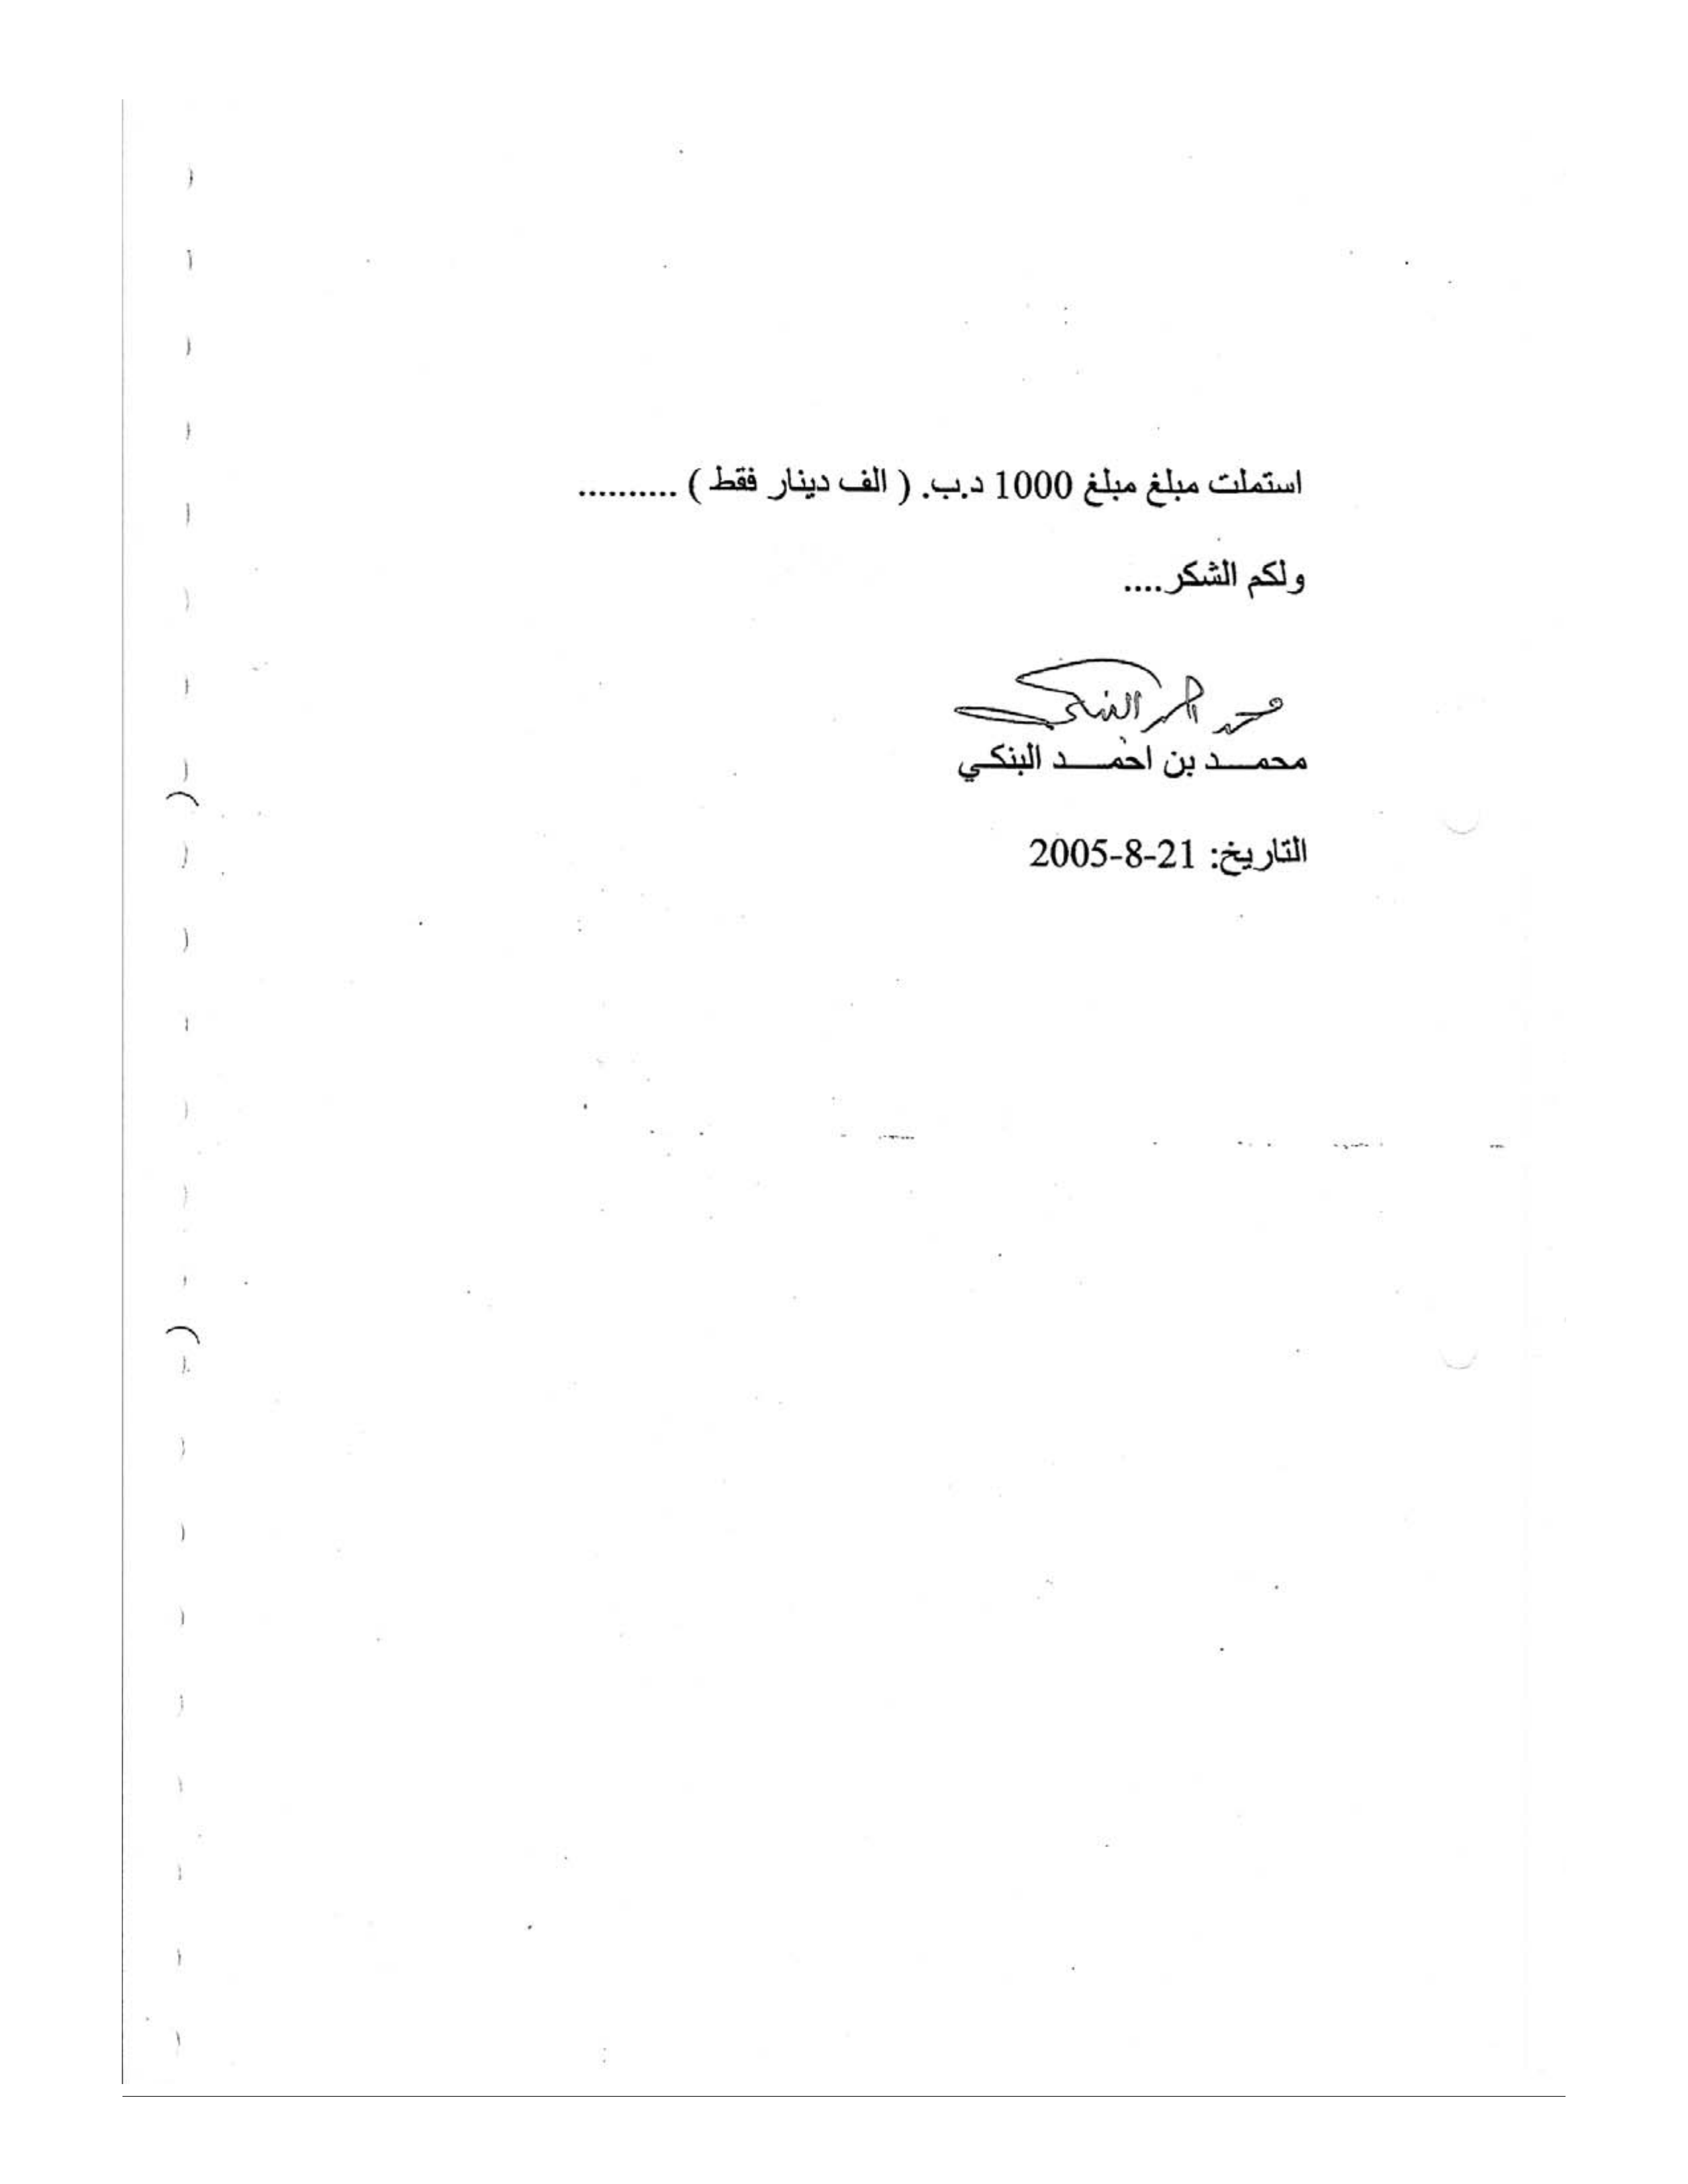 استملت مبلغ مبلغ 1000 د.ب. ( الف دينار فقط ) ..........
ولكم الشكر....
محمد احمد البنكي
محمـــد بن احمـــد البنكي
التاريخ: 21-8-2005